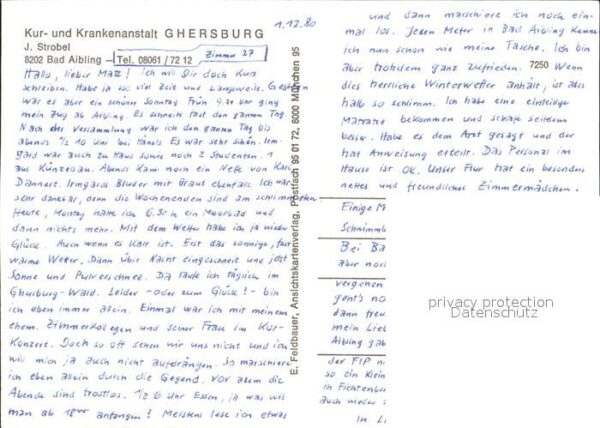 1.12.80
Kur- und Krankenanstalt GHERSBURG
J. Strobel
8202 Bad Aibling – Tel. 08061 / 72 12
Zimmer 27
Hallo, lieber Matz! Ich will Dir doch kurz
schreiben. Habe ja so viel Zeit und Langeweile. Gestern
war es aber ein schöner Sonntag. Früh 9.20 Uhr ging
mein Zug ab Aibling. Es schneite fast den ganzen Tag
Nach der Versammlung war ich den ganzen Tag bis
abends 1/2 10 Uhr bei Händls. Es war sehr schön. Irm-
gard war auch zu Haus sowie noch 2 Studenten. 1
aus Künzelsau. Abends kam noch ein Neffe von Karl
Dannert. Irmgards Bruder mit Braut ebenfalls. Ich war
sehr dankbar, denn die Wochenenden sind am schlimmsten
Heute, Montag hatte ich 6.30 h ein Moorbad und
dann nichts mehr. Mit dem Wetter habe ich ja wieder
Glück. Auch wenn es kalt ist. Erst das sonnige, fast
warme Wetter. Dann über Nacht eingeschneit und jetzt
Sonne und Pulverschnee. Da laufe ich täglich im
Ghersburg-Wald. Leider - oder zum Glück! - bin
ich eben immer allein. Einmal war ich mit meinem
ehem. Zimmerkollegen und seiner Frau im Kur-
Konzert. Doch so oft sehen wir uns nicht und ich
will mich ja auch nicht aufdrängen. So marschiere
ich eben allein durch die Gegend. Vor allem die
Abende sind trostlos. 1/2 6 Uhr Essen, ja was will
man ab 18 Uhr anfangen! Meistens lese ich etwas
E. Feldbauer, Ansichtskartenverlag, Postfach 95 01 72, 8000 München 95
und dann marschiere ich noch ein-
mal los. Jeden Meter in Bad Aibling kenne
ich nun schon wie meine Tasche. Ich bin
aber trotzdem ganz zufrieden. 7250 Wenn
dies herrliche Winterwetter anhält, ist alles
halb so schlimm. Ich habe eine einteilige
Matratze bekommen und schlafe seitdem
besser. Habe es dem Arzt gesagt und der
hat Anweisung erteilt. Das Personal im
Hause ist OK. Unser Flur hat ein besonders
nettes und freundliches Zimmermädchen.
Einige M
Schwimmb
Bei Ba
aber noch
vergehen
gent's no
dann freu
mein Lieb
Aibling gab
der FIP n
so ein Klein
in Fichtenber
auch wieder
In L
privacy protection
Datenschutz